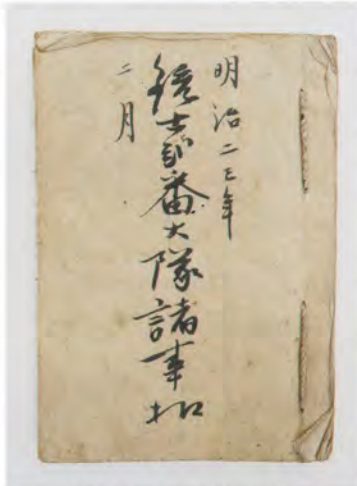 明治二巳年
銃士弐番大隊諸事扣
二月